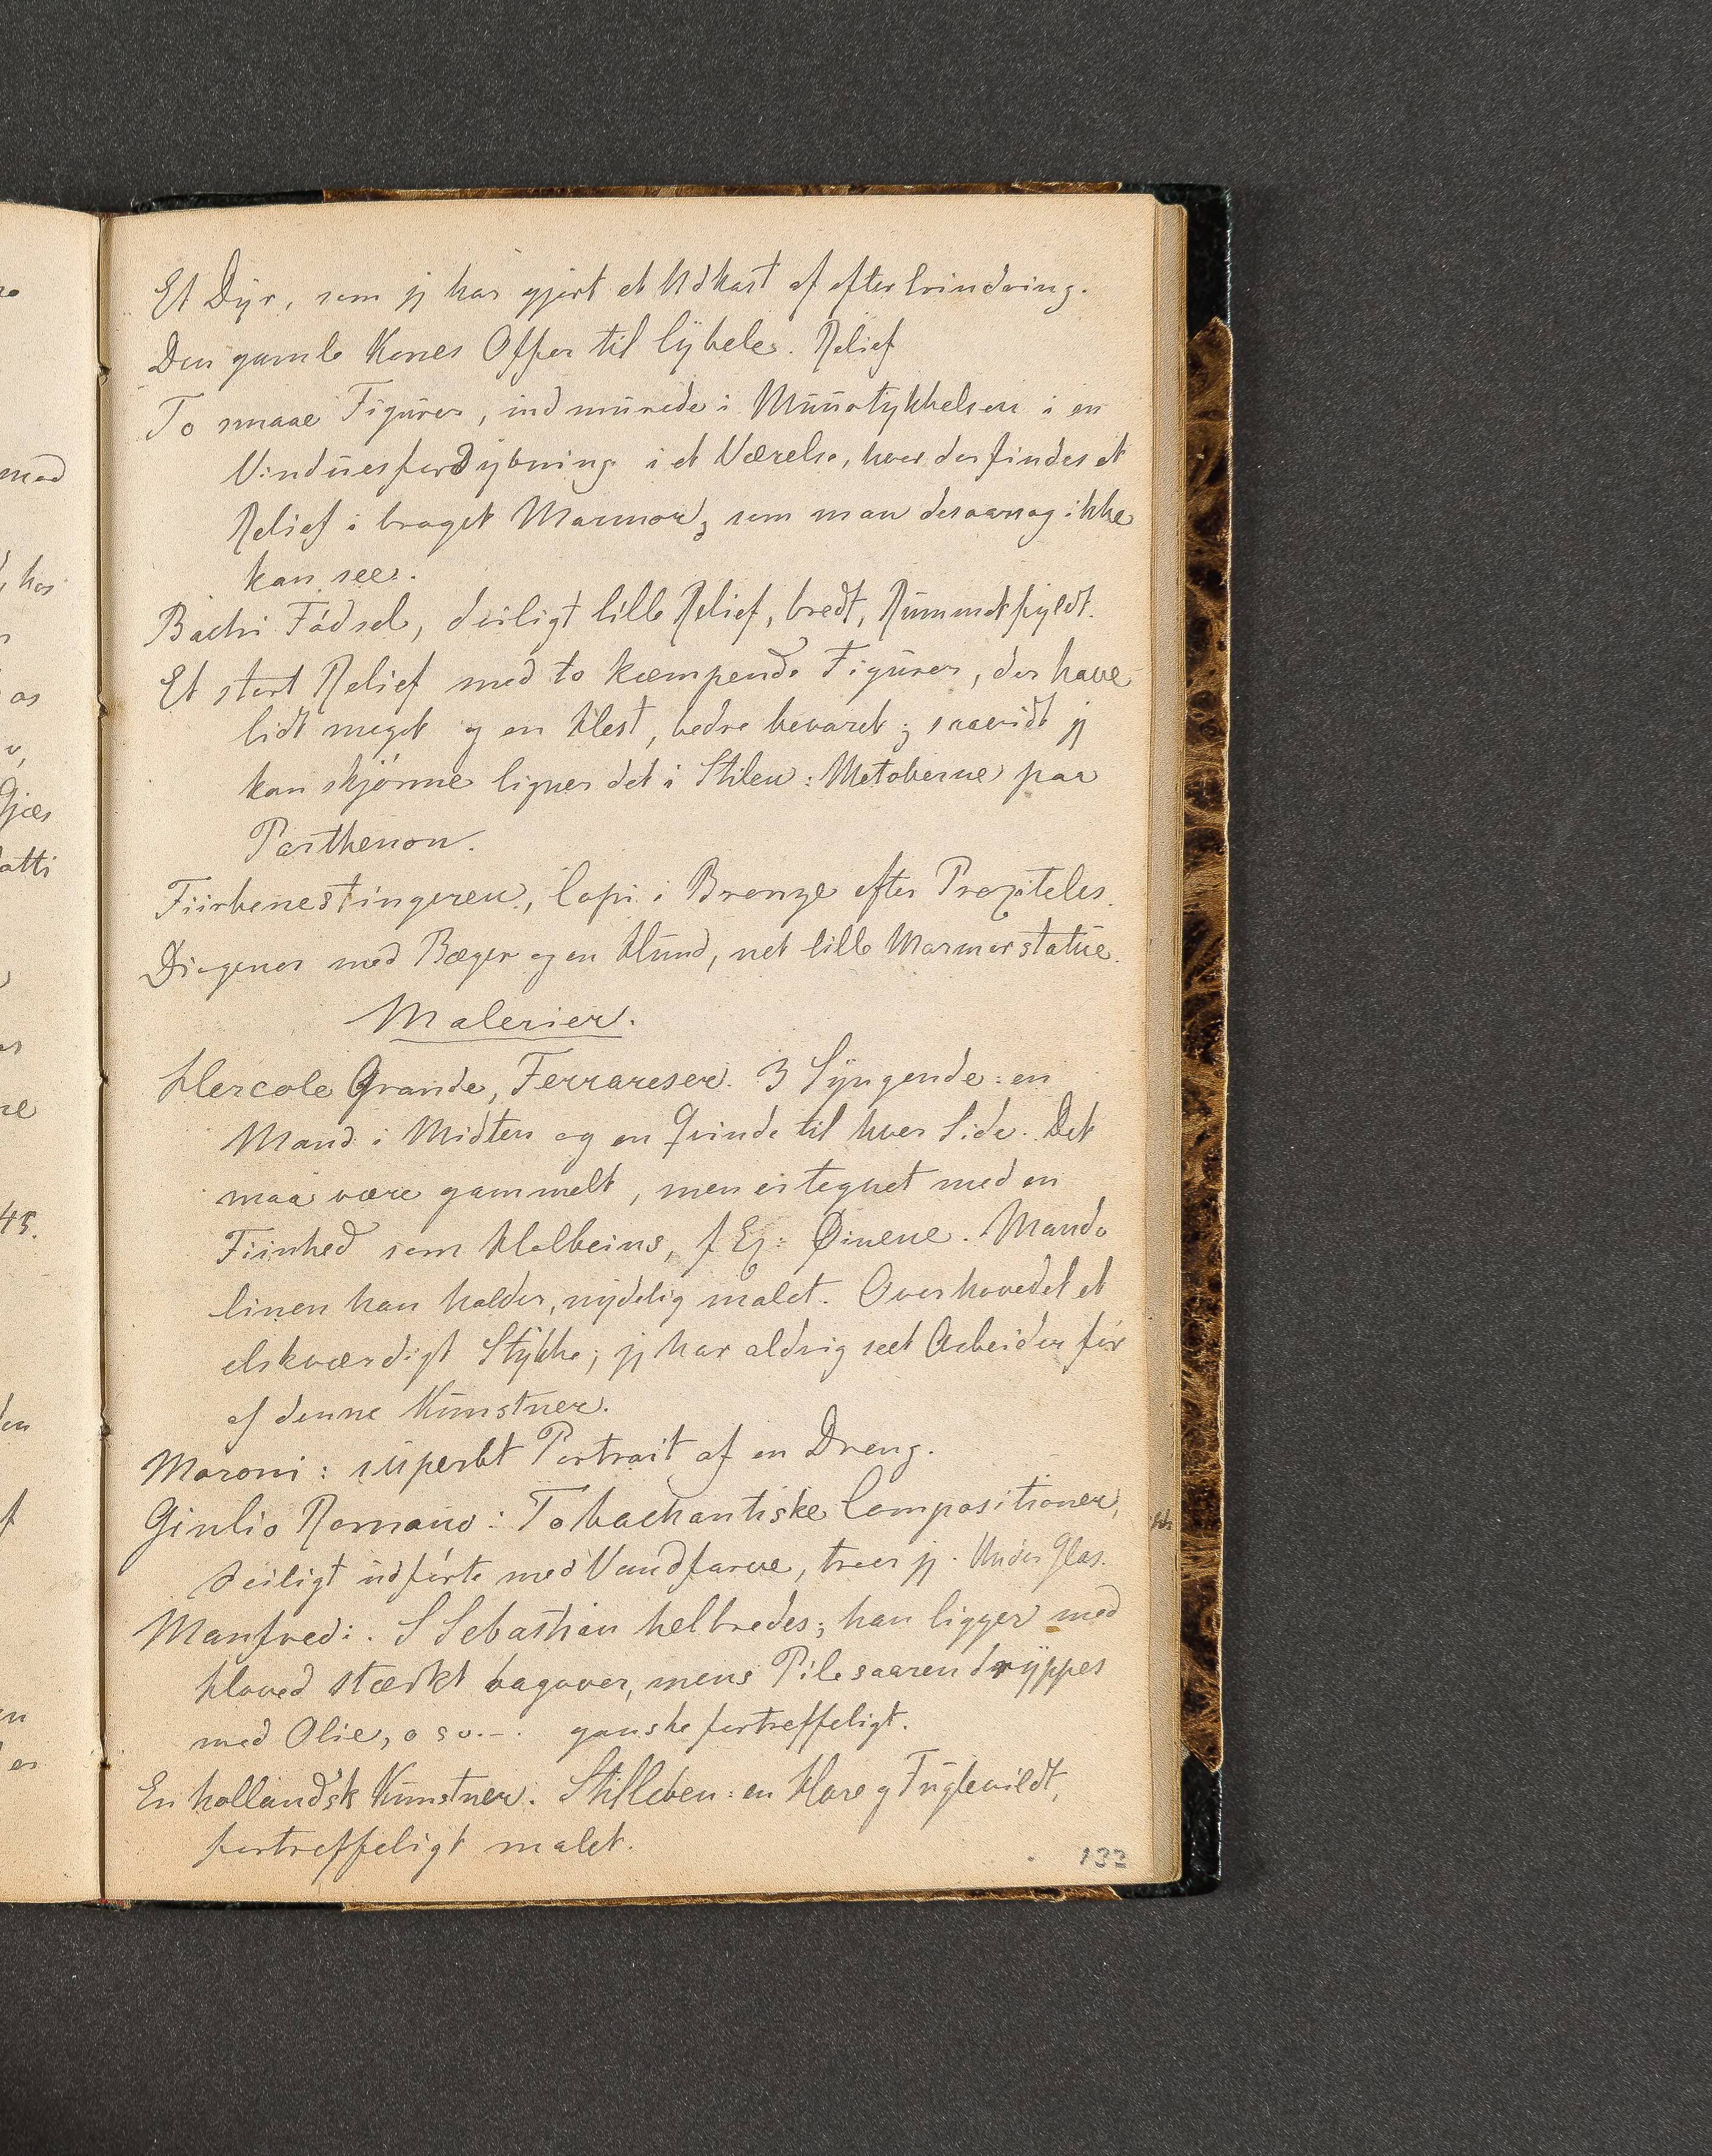 Et Dyr, som jeg har gjort et Udkast af efter Erindring.
Den gamle Kones Offer til Cybele. Relief
To smaae Figurer, indmurede i Muurtykkelsen i en
Vinduesfordybning i et Værelse, hvor der findes et
Relief i braget Marmor, som man desaarsag ikke
kan see.
Bachi Fødsel, deiligt lille Relief, bredt, Rummet fyldt.
Et stort Relief med to kæmpende Figurer, der have
lidt meget og en Hest, bedre bevaret; saavidt jeg
kan skjønne ligner det i Stilen: Metoberne paa
Parthenon.
Fiirbenestingeren, Copi i Bronze efter Praxiteles.
Diogenes med Bæger og en Hund, net lille Marmorstatue.
Malerier.
Hercole Grande, Ferrareser. 3 Syngende: en
Mand i Midten og en Qvinde til hver Side. Det
maa være gammelt, men er tegnet med en
Fiinhed som Holbeins, f Ex: Øinene. Mando
linen han holder, nydelig malet. Overhovedet et
elskværdigt Stykke; jeg har aldrig seet Arbeider før
af denne Kunstner.
Moroni: superbt Portrait af en Dreng.
Giulio Romano: To bachantiske Compositioner,
deiligt udførte med Vandfarve, troer jeg. Under Glas.
Manfredi. S Sebastian helbredes; han ligger med
Hoved stærkt bagover, mens Pilesaaren dryppes
med Olie, o s v. – . ganske fortreffeligt.
En hollandsk Kunstner. Stilleben: en Hare og Fuglevildt,
fortreffeligt malet.
133